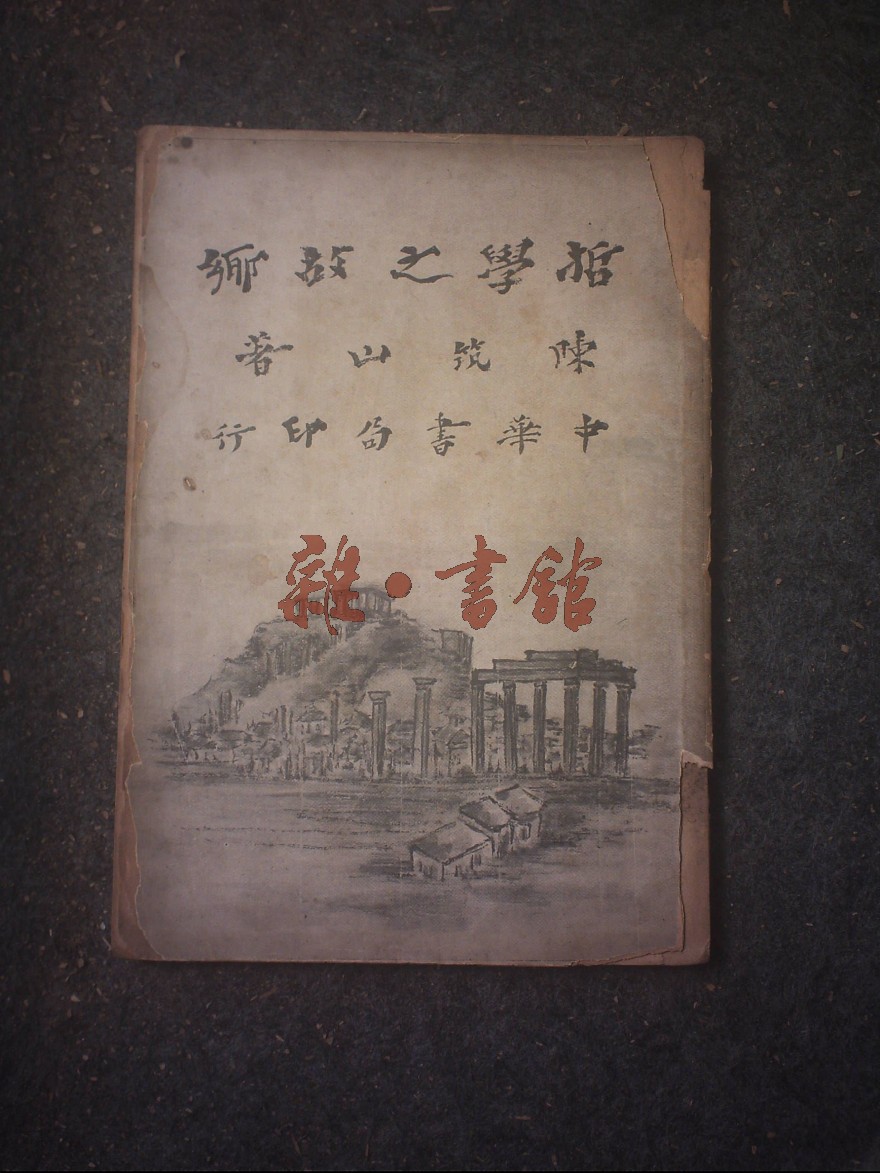 哲學之故鄉
陳筑山著
中華書局印行
雜·書館